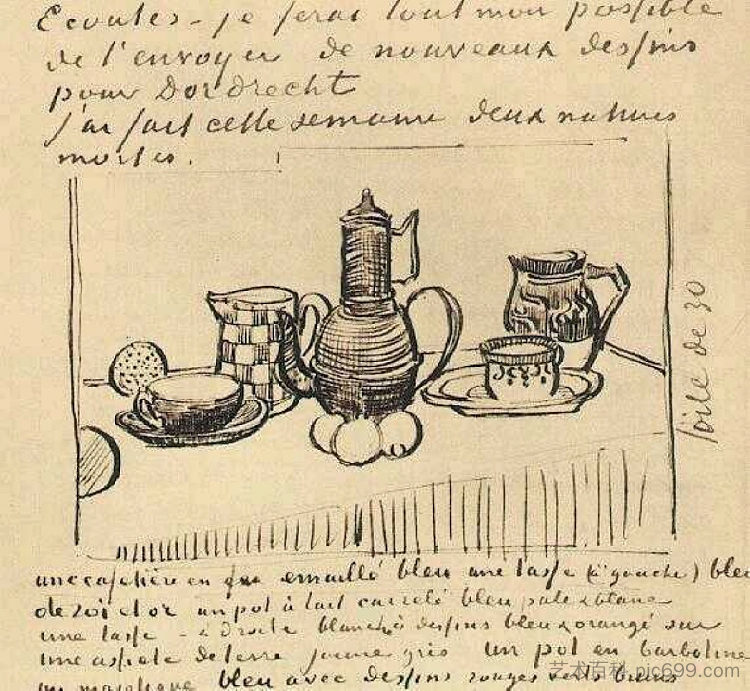 Ecoutes - je ferai tout mon possible
de t'envoyer de nouveaux dessins
pour Dordrecht
J'ai fait cette semaine deux natures
mortes.
Toile de 30
une cafetière en fer emaillé bleu une tasse (à gauche) bleu
de roi et or un pot à lait carrelé bleu pale & blanc
une tasse - à droite blanche à dessins bleu & orangé sur
une assiete de terre jaune gris un pot en barbotine
ou majolique bleu avec dessins rouges verts bruns
艺术百科 pic699.com